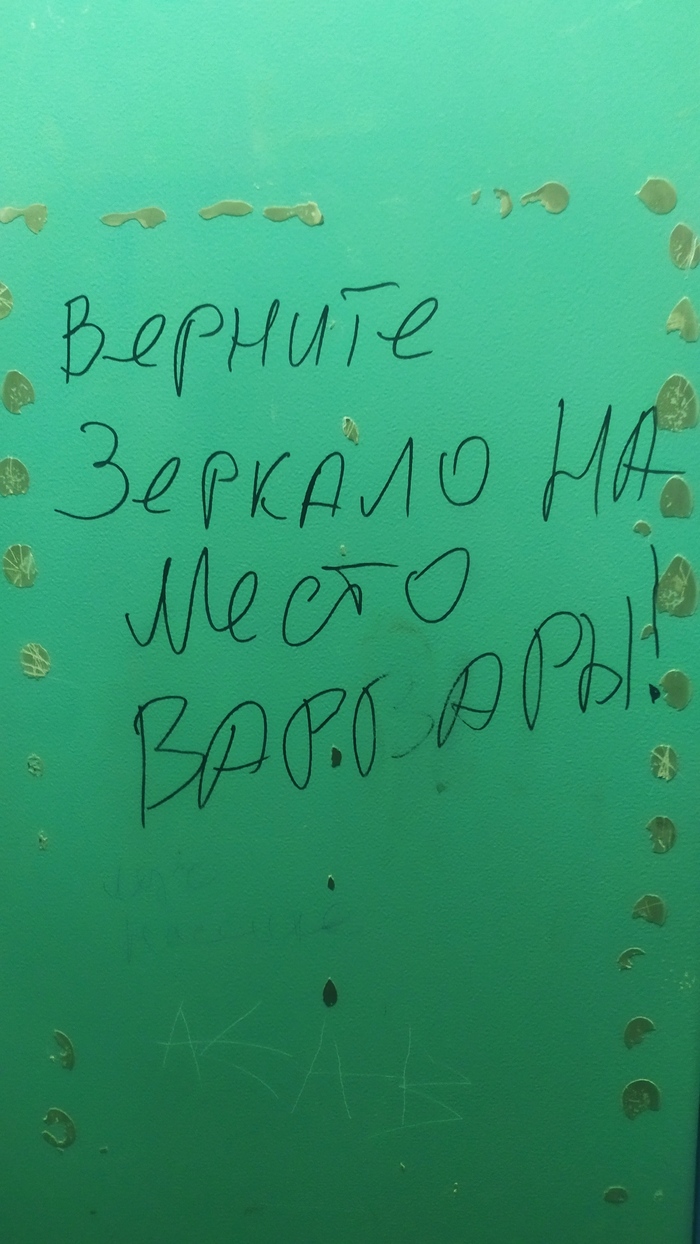 Верните
Зеркало НА
Место
ВАРВАРЫ!